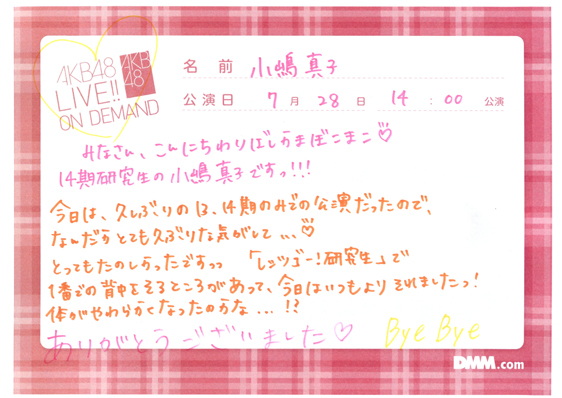 AKB48
LIVE!!
ON DEMAND
AKB
48
名 前 小嶋真子
公演日 7月28日 14:00公演
みなさん、こんにちわりばしかまぼこまこ♡
14期研究生の小嶋真子ですっ!!!
今日は、久しぶりの13、14期のみでの公演だったので、
なんだかとても久ぶりな気がして...♡
とってもたのしかったですっっ 「レッツゴー!研究生」で
1番での背中をそるところがあって、今日はいつもよりそれましたっ!
体がやわらかくなったのかな...!?
ありがとうございました♡ Bye Bye
DMM.com